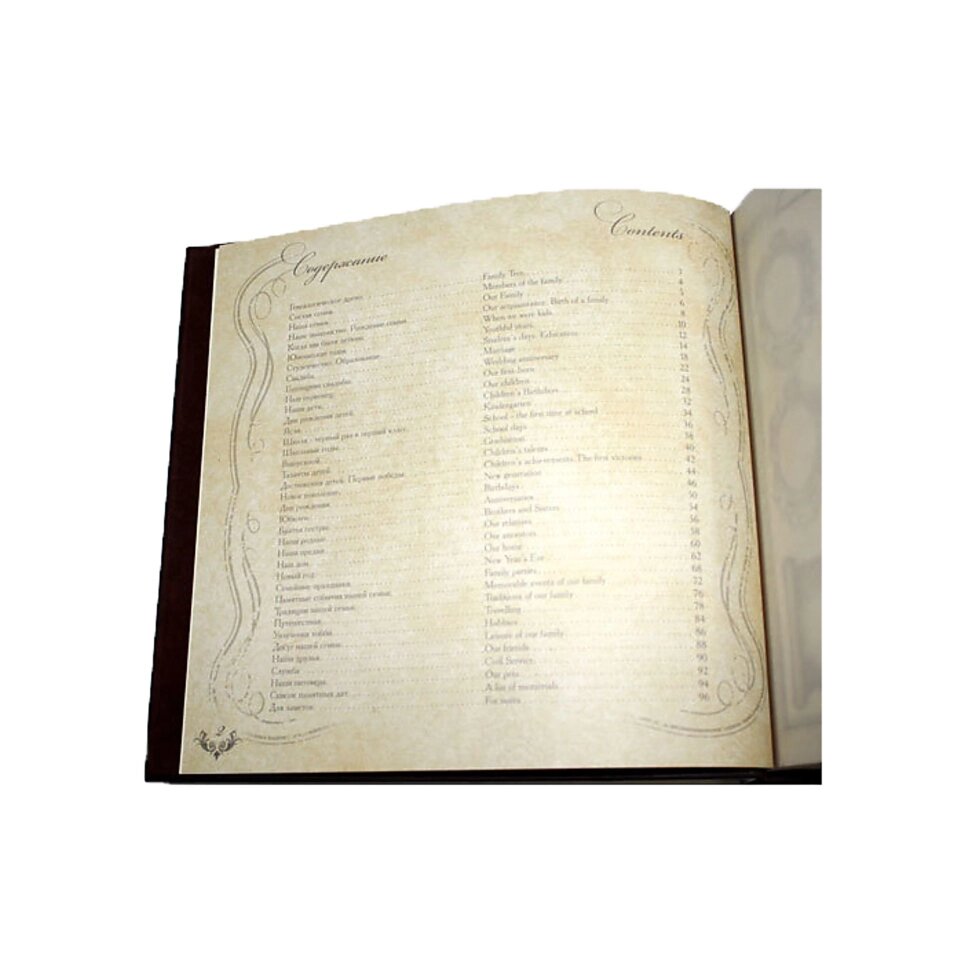 Содержание
Contents
Генеалогическое древо Family Tree 3
Состав семьи Members of the family 4
Наша семья Our Family 5
Наше знакомство. Рождение семьи Our acquaintance. Birth of a family 6
Когда мы были детьми When we were kids 8
Юношеские годы Youthful years 10
Студенчество. Образование Student's days. Education 12
Свадьба Marriage 14
Годовщина свадьбы Wedding anniversary 18
Наш первенец Our first-born 22
Наши дети Our children 24
Дни рождения детей Children's Birthdays 28
Ясли Kindergarten 32
Школа - первый раз в первый класс School - the first time at school 34
Школьные годы School days 36
Выпускной Graduation 38
Таланты детей Children's talents 40
Достижения детей. Первые победы Children's achievements. The first victories 42
Новое поколение New generation 44
Дни рождения Birthdays 46
Юбилеи Anniversaries 50
Братья сестры Brothers and Sisters 54
Наши родные Our relatives 56
Наши предки Our ancestors 58
Наш дом Our home 60
Новый год New Year's Eve 62
Семейные праздники Family parties 68
Памятные события нашей семьи Memorable events of our family 72
Традиции нашей семьи Traditions of our family 76
Путешествия Travelling 78
Увлечения хобби Hobbies 84
Досуг нашей семьи Leisure of our family 86
Наши друзья Our friends 88
Служба Civil Service 90
Наши питомцы Our pets 92
Список памятных дат A list of memorials 94
Для заметок For notes 96
2